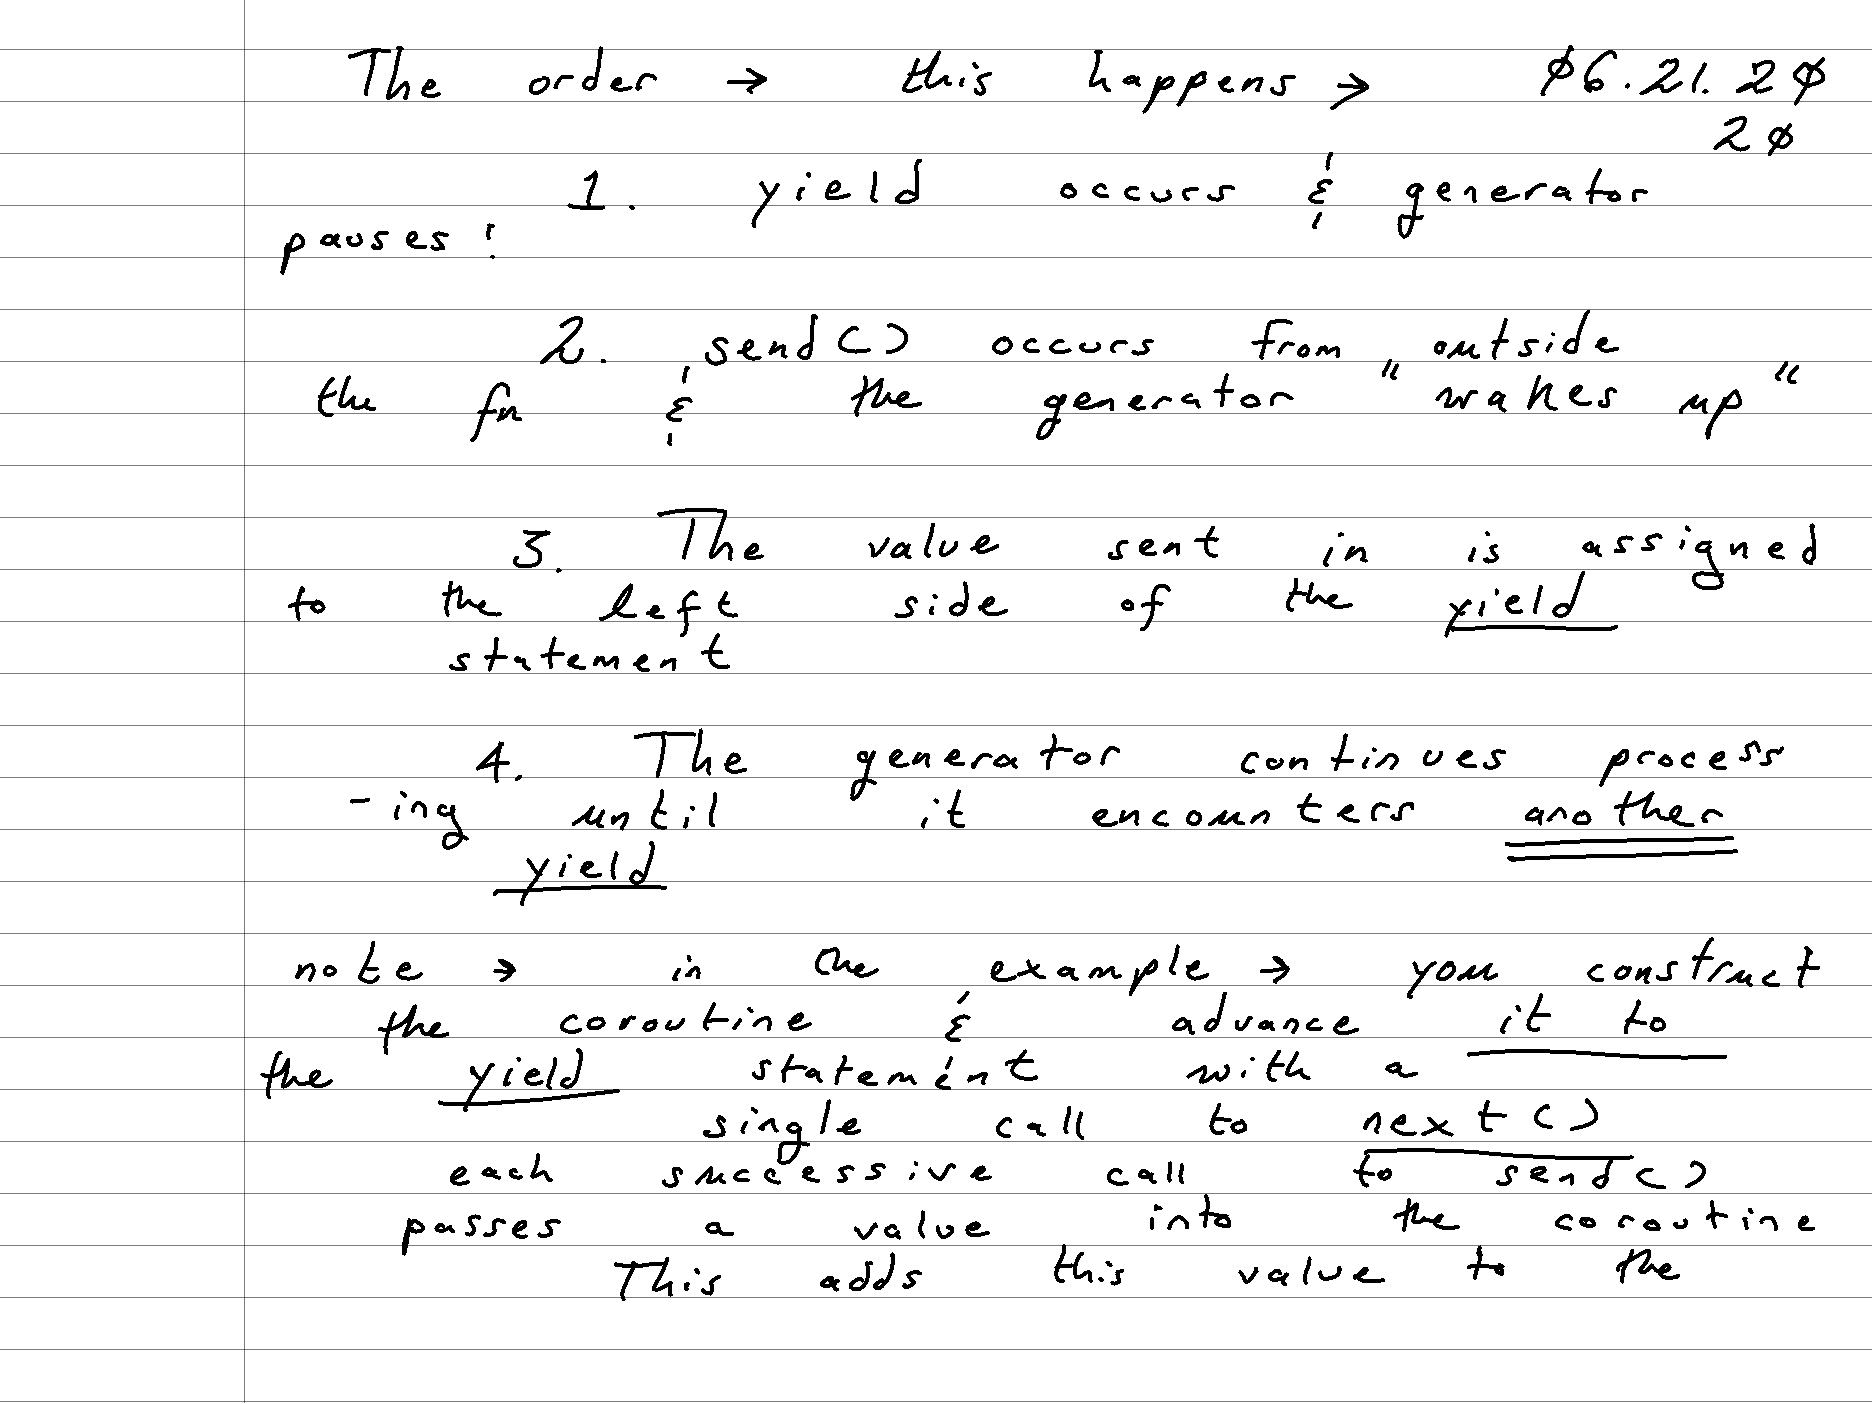 The order → this happens → 06.21.20
20
1. yield occurs & generator
pauses!
2. send() occurs from outside
the fn & the generator "wakes up"
3. The value sent in is assigned
to the left side of the yield
statement
4. The generator continues process
-ing until it encounters another
yield
note → in the example → you construct
the coroutine & advance it to
the yield statement with a
single call to next()
each successive call to send()
passes a value into the coroutine
This adds this value to the